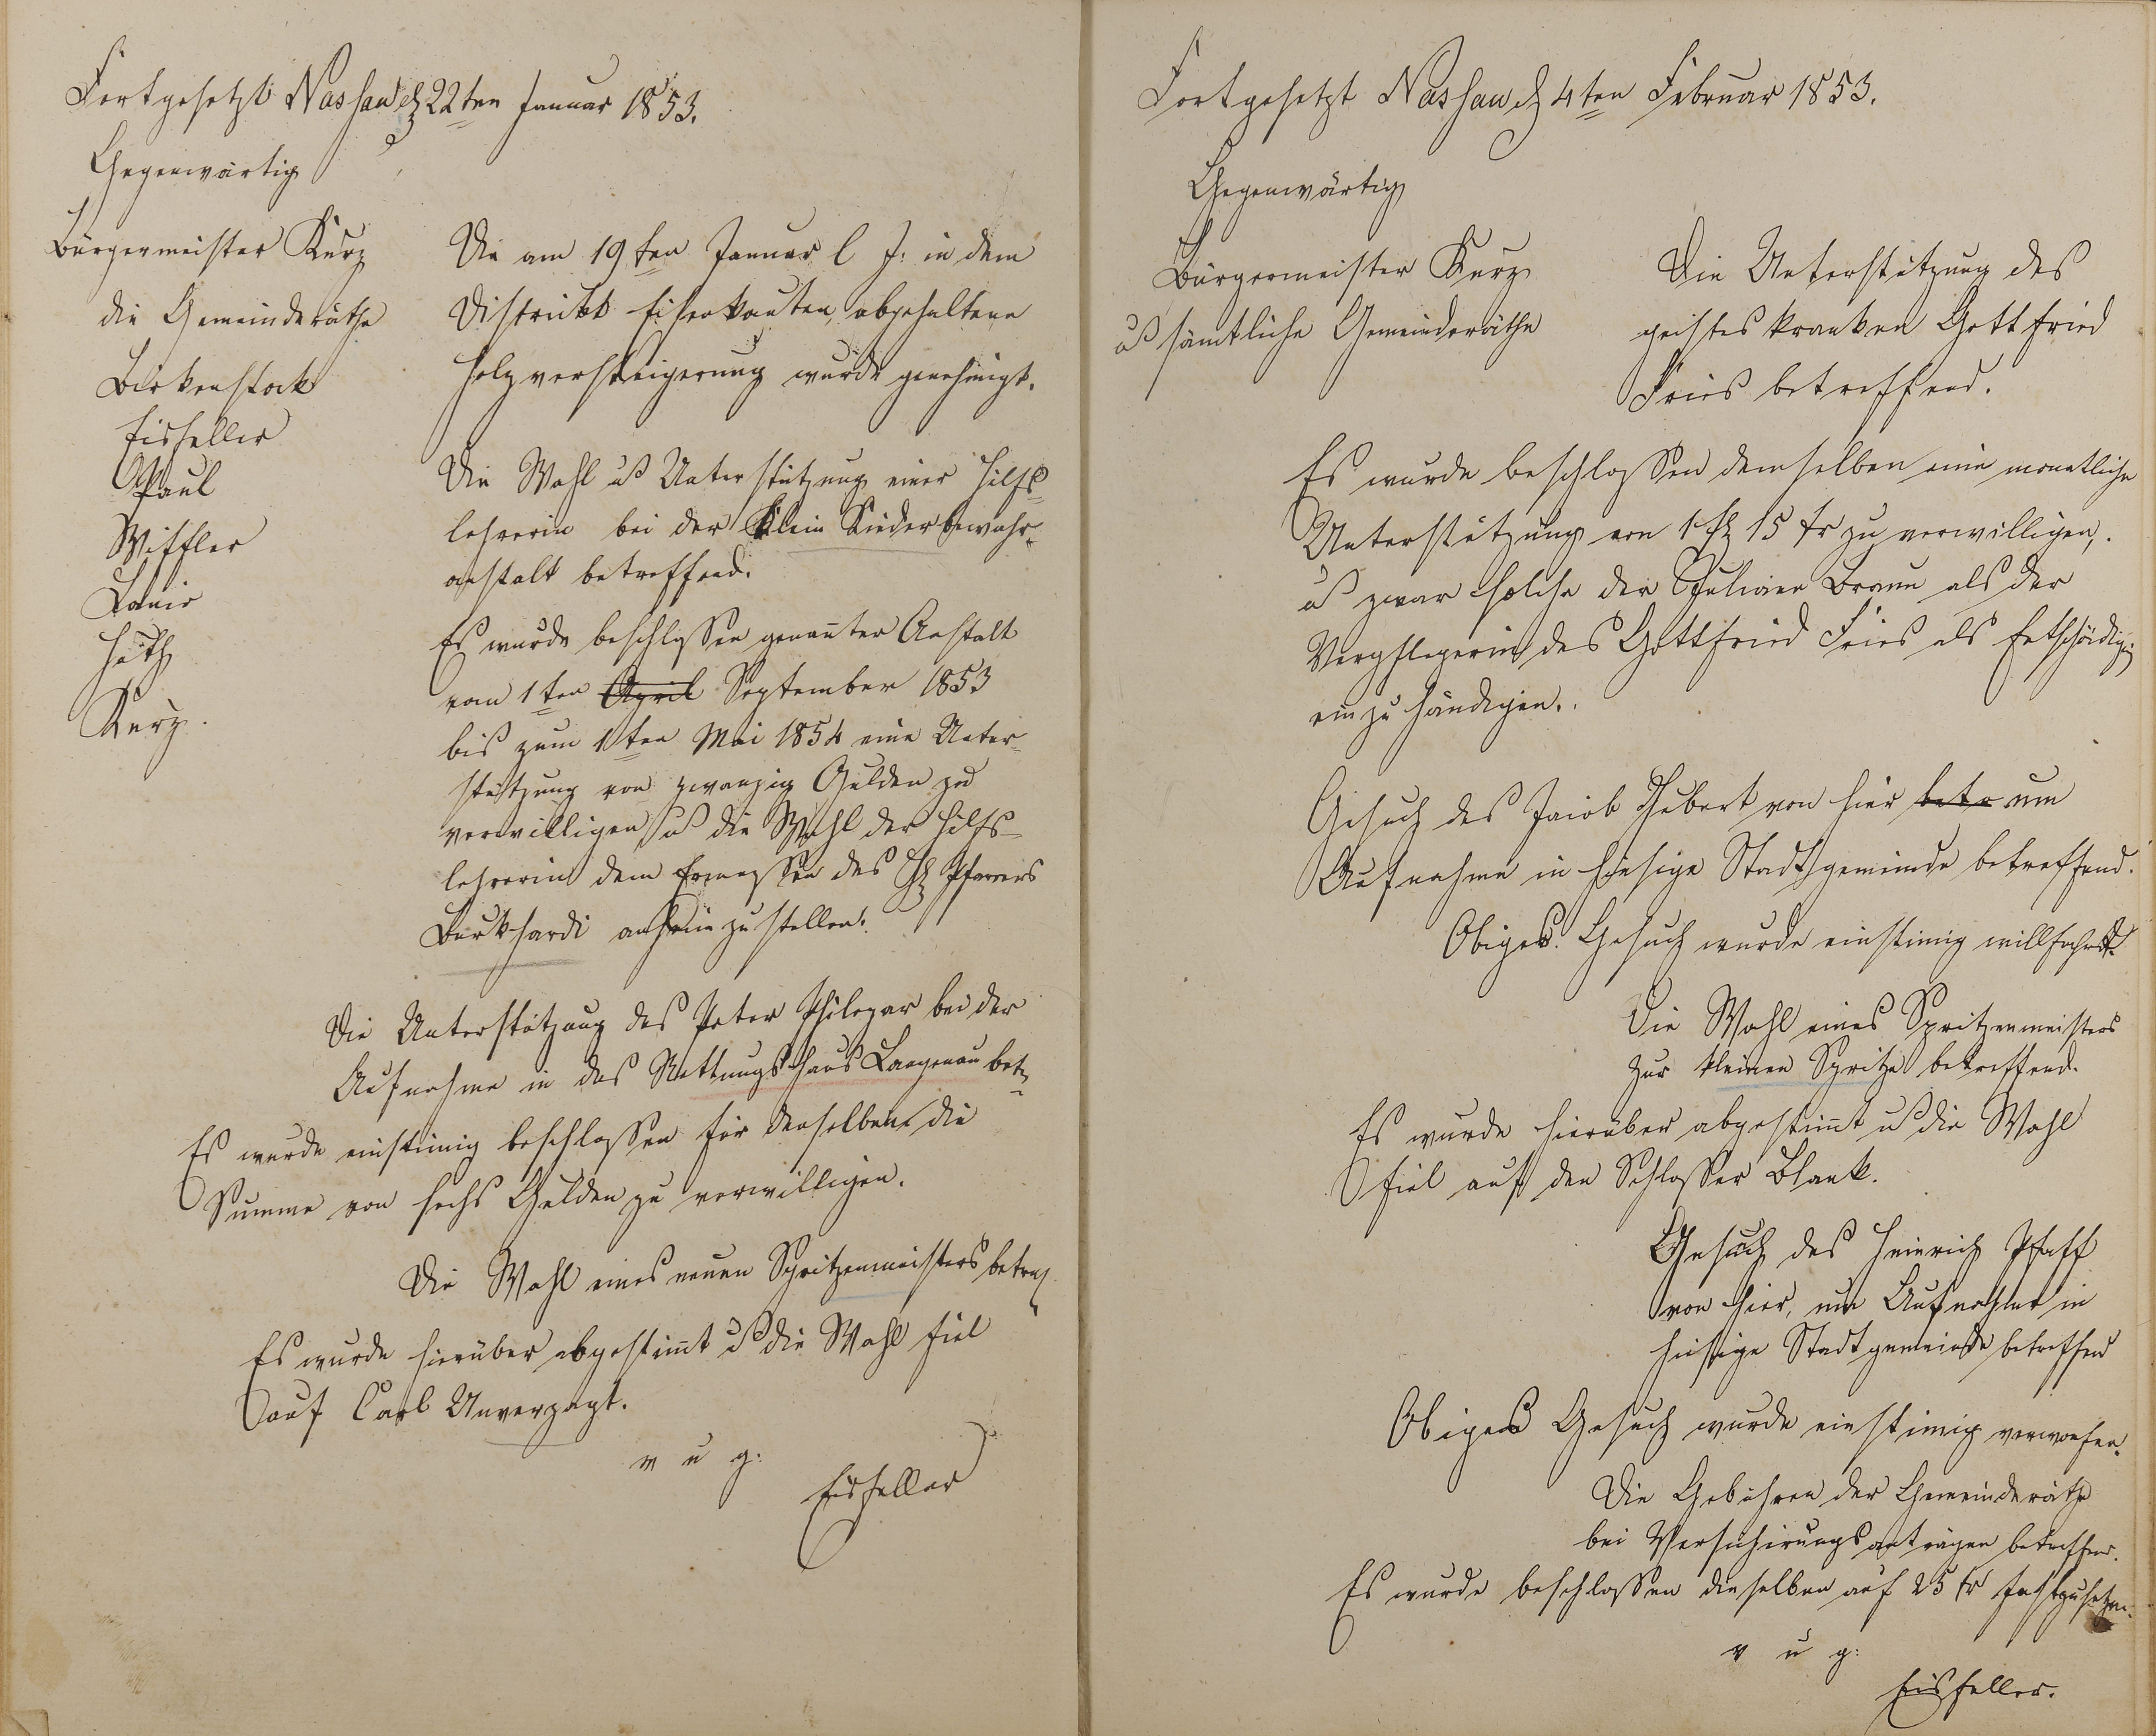 Fortgesetzt Nassau d 22ten Januar 1853.
Gegenwärtig
Bürgermeister Kurz
die Gemeinderäthe
Birkenstock
Eisfeller
Paul
Wiffler
Lanio
Kurz.
Die am 19ten Januar l J: in dem
Distrikt Eisenkauten abgehaltene
Holzversteigerung wurde genehmigt.
Die Wahl u Unterstützung einer Hilfs-
lehrerin bei der Klein Kinderbewahr-
anstalt betreffend.
Es wurde beschlossen genanter Anstalt
vom 1ten April September 1853
bis zum 1ten Mai 1854 eine Unter-
stützung von zwanzig Gulden zu
verwilligen u die Wahl der Hilfs-
lehrerin dem Ermessen des H Pfarrers
Burkhardi anheim zu stellen.
Die Unterstützung des Peter Philgar bei der
Aufnahme in das Rettungshaus Langenau betr
Es wurde einstimig beschlossen für denselben die
Summe von sechs Gulden zu verwilligen.
Die Wahl eines neuen Spritzenmeisters betref
Es wurde hierüber abgestimt u die Wahl fiel
auf Carl Unverzagt.
v u g:
Eisfeller
Fortgesetzt Nassau d 4ten Februar 1853.
Gegenwärtig
Bürgermeister Kurz
u sämtliche Gemeinderäthe
Die Unterstützung des
geisteskranken Gottfried
Fries betreffend.
Es wurde beschlossen demselben eine monatliche
Unterstützung von 1 fl 15 kr zu verwilligen,
u zwar solche der Juliane Braun als der
Verpflegerin des Gottfried Fries als Entschädig:
einzuhändigen.
Gesuch des Jacob Hubert von hier betr um
Aufnahme in hiesige Stadtgemeinde betreffend.
Obiges Gesuch wurde einstimig willfahrt.
Die Wahl eines Spritzenmeisters
zur kleinen Spritze betreffend.
Es wurde hierüber abgestimt u die Wahl
fiel auf den Schlosser Blank.
Gesuch des Heinrich Pfaff
von hier, um Aufnahme in
hiesige Stadtgemeinde betreffend
Obiges Gesuch wurde einstimig verworfen.
Die Gebühren der Gemeinderäthe
bei Versicherungsanträgen betreffend.
Es wurde beschlossen dieselben auf 25 kr festzusetzen.
v u g:
Eisfeller.